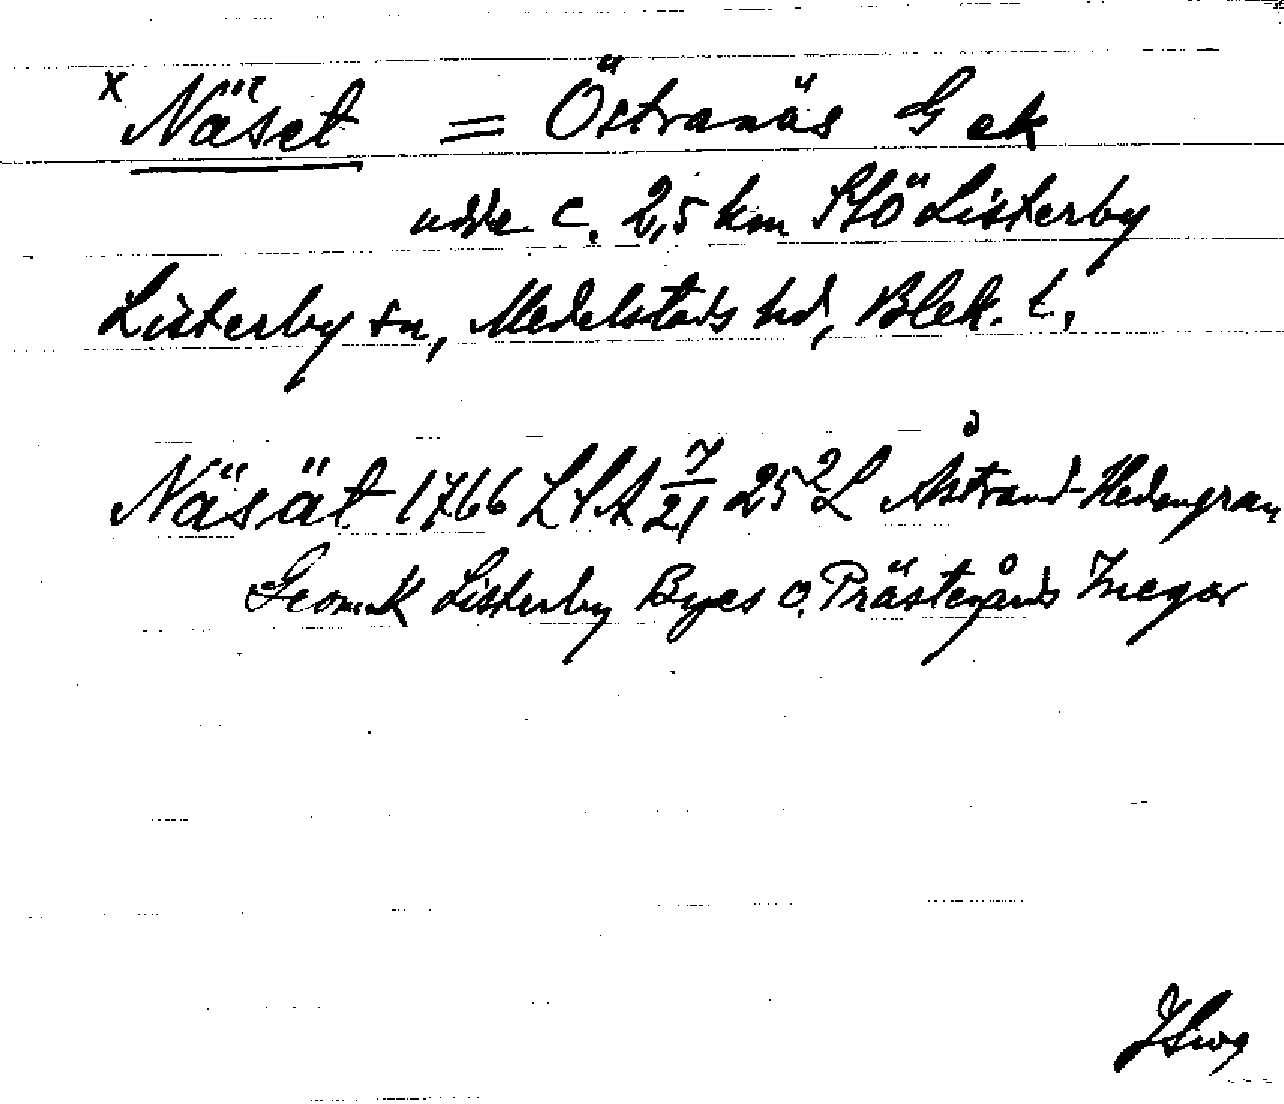 x Näset = Östranäs G ek
udde c. 2,5 km SSÖ Listerby
Listerby sn, Medelstads hd, Blek. l.
Näsät 1766 LSA 7/21 25²L Åstrand-Hedengran
Geom.K Listerby Byes o. Prästegårds Inegor